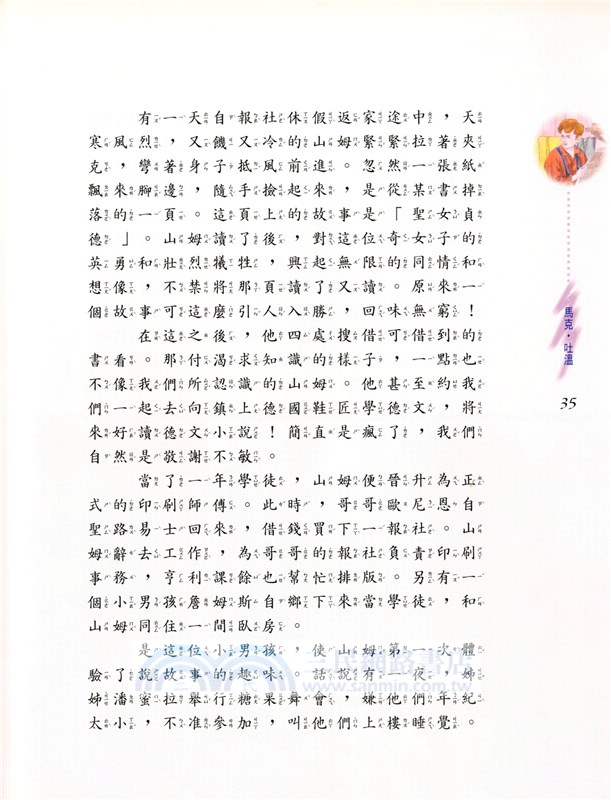 有一天自報社休假返家途中，天
寒風烈，又饑又冷的山姆緊緊拉著夾
克，彎著身子抵風前進。忽然一張紙
飄來腳邊，隨手撿起來，是從某書掉
落的一頁。這頁上的故事是「聖女貞
德」。山姆讀了後，對這位奇女子的
英勇和壯烈犧牲，興起無限的同情和
想像，不禁將那頁讀了又讀。原來一
個故事可這麼引人入勝，回味無窮！
在這之後，他四處搜借可借到的
書看。那付渴求知識的樣子，一點也
不像我們所認識的山姆。他甚至約我
們一起去向鎮上德國鞋匠學德文，將
來好讀德文小說！簡直是瘋了，我們
自然是敬謝不敏。
當了一年學徒，山姆便晉升為正
式的印刷師傅。此時，哥哥歐尼恩自
聖路易士回來，借錢買下一報社。山
姆辭去工作，為哥哥的報社負責印刷
事務，亨利課餘也幫忙排版。另有一
個小男孩詹姆斯自鄉下來當學徒，和
山姆同住一間臥房。
是這位小男孩，使山姆第一次體
驗了說故事的趣味。話說有一夜，姊
姊潘蜜拉舉行糖果舞會，嫌他們年紀
太小，不准參加，叫他們上樓睡覺。
馬克・吐溫
35
三民網路書店
www.sanmin.com.tw